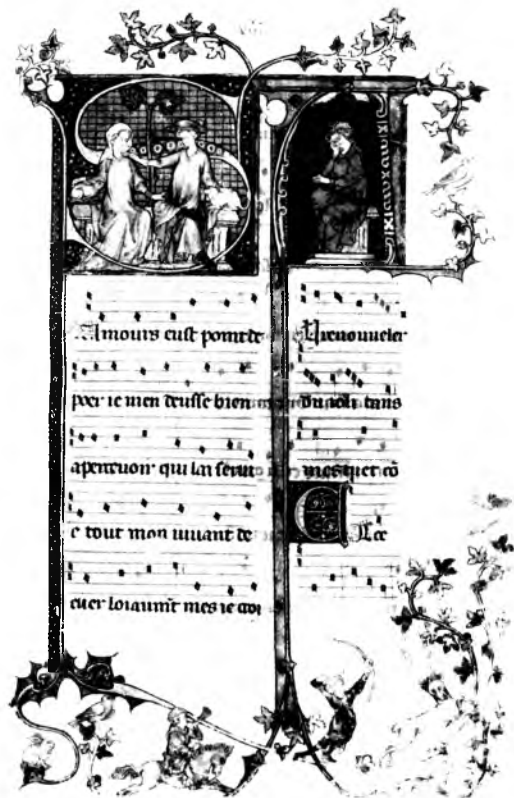 SAmours eust point de
poer ie men deusse bien
apercevoir qui lai serui
e tout mon uiuant de
cuer loiaumt mes ie croi
AU renouueler
du ioli tans
mestuet cō
Ecce